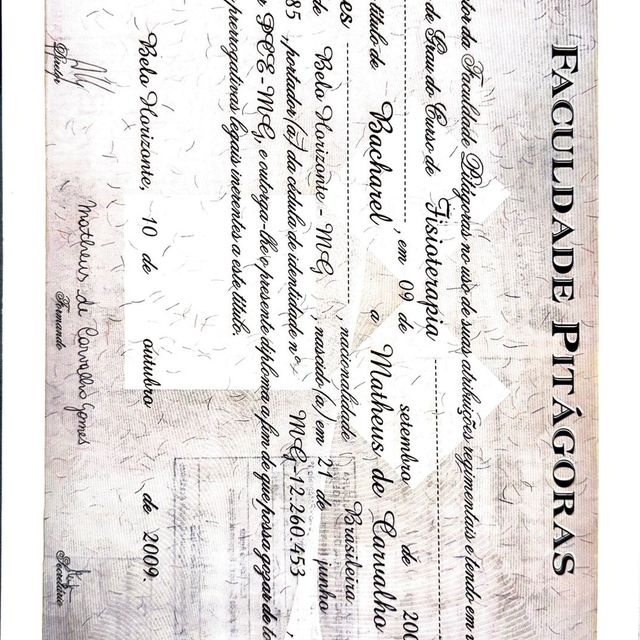 FACULDADE PITÁGORAS
da Faculdade Pitágoras no uso de suas atribuições regimentais e tendo em
de Grau do Curso de Fisioterapia
, em 09 de setembro de 200
título de Bacharel a Matheus de Carvalho
es , nacionalidade Brasileira
de Belo Horizonte - MG , nascido (a) em 21 de junho
85 , portador (a) da cédula de identidade nº MG-12.260.453 ,
PCE-MG, e outorga-lhe o presente diploma a fim de que possa gozar de
prerrogativas legais inerentes a este título.
Belo Horizonte, 10 de outubro de 2009.
Matheus de Carvalho Gomes
Formando
Secretário